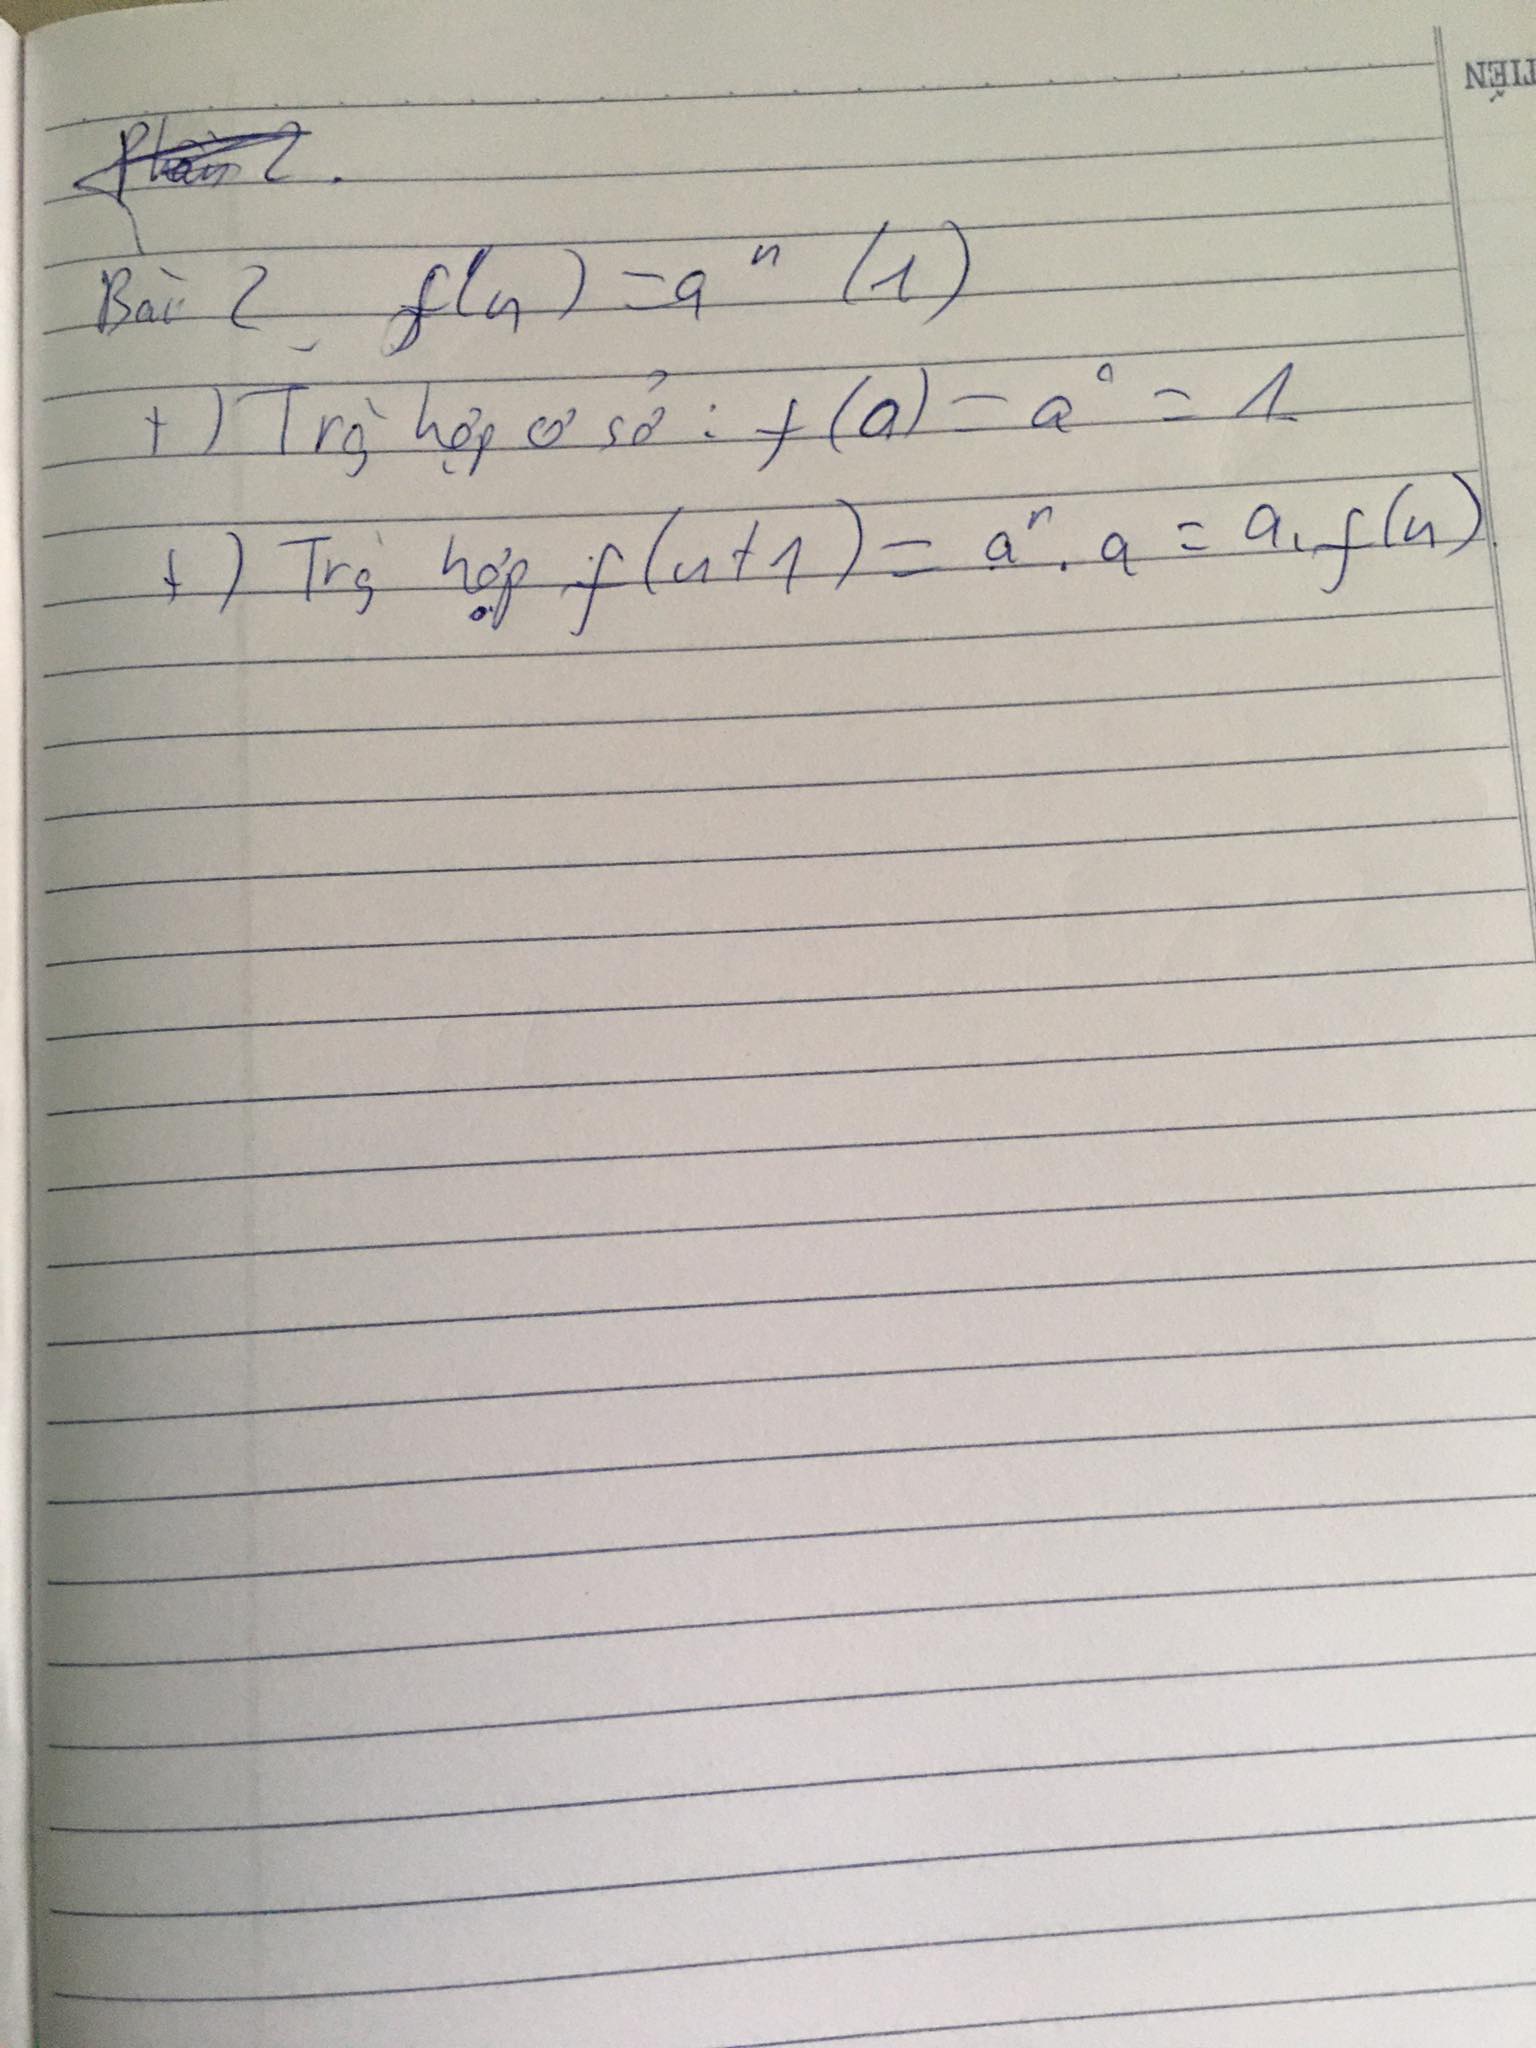 TIẾN
Phần 2.
Bài 2 f(n) = a^n (1)
+) Trg hợp cơ sở : f(a) = a^0 = 1
+) Trg hợp f(n+1) = a^n . a = a . f(n).